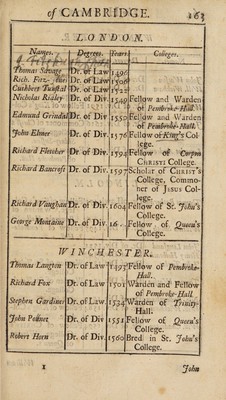 of CAMBRIDGE. 163
LONDON.
Names. Degrees. Years Colleges.
Thomas Savage Dr. of Law 1496
Rich. Fitz- Dr. of Law 1506
Cuthbert Tunstal Dr. of Law 1522
Nicholas Ridley Dr. of Div. 1549 Fellow and Warden
of Pembroke-Hall.
Edmund Grindal Dr. of Div. 1550 Fellow and Warden
of Pembroke-Hall.
John Elmer Dr. of Div. 1576 Fellow of King's Col-
lege.
Richard Fletcher Dr. of Div. 1594 Fellow of Corpus
CHRISTI College.
Richard Bancroft Dr. of Div. 1597 Scholar of CHRIST's
College, Commo-
ner of Jesus Col-
lege.
Richard Vaughan Dr. of Div. 1604 Fellow of St. John's
College.
George Montaine Dr. of Div. 16 Fellow of Queen's
College.
WINCHESTER.
Thomas Langton Dr. of Law 1493 Fellow of Pembroke-
Hall.
Richard Fox Dr. of Law 1501 Warden and Fellow
of Pembroke-Hall
Stephen Gardiner Dr. of Law 1534 Warden of Trinity-
Hall.
John Poinet Dr. of Div. 1551 Fellow of Queen's
College.
Robert Horn Dr. of Div. 1560 Bred in St. John's
College.
I John